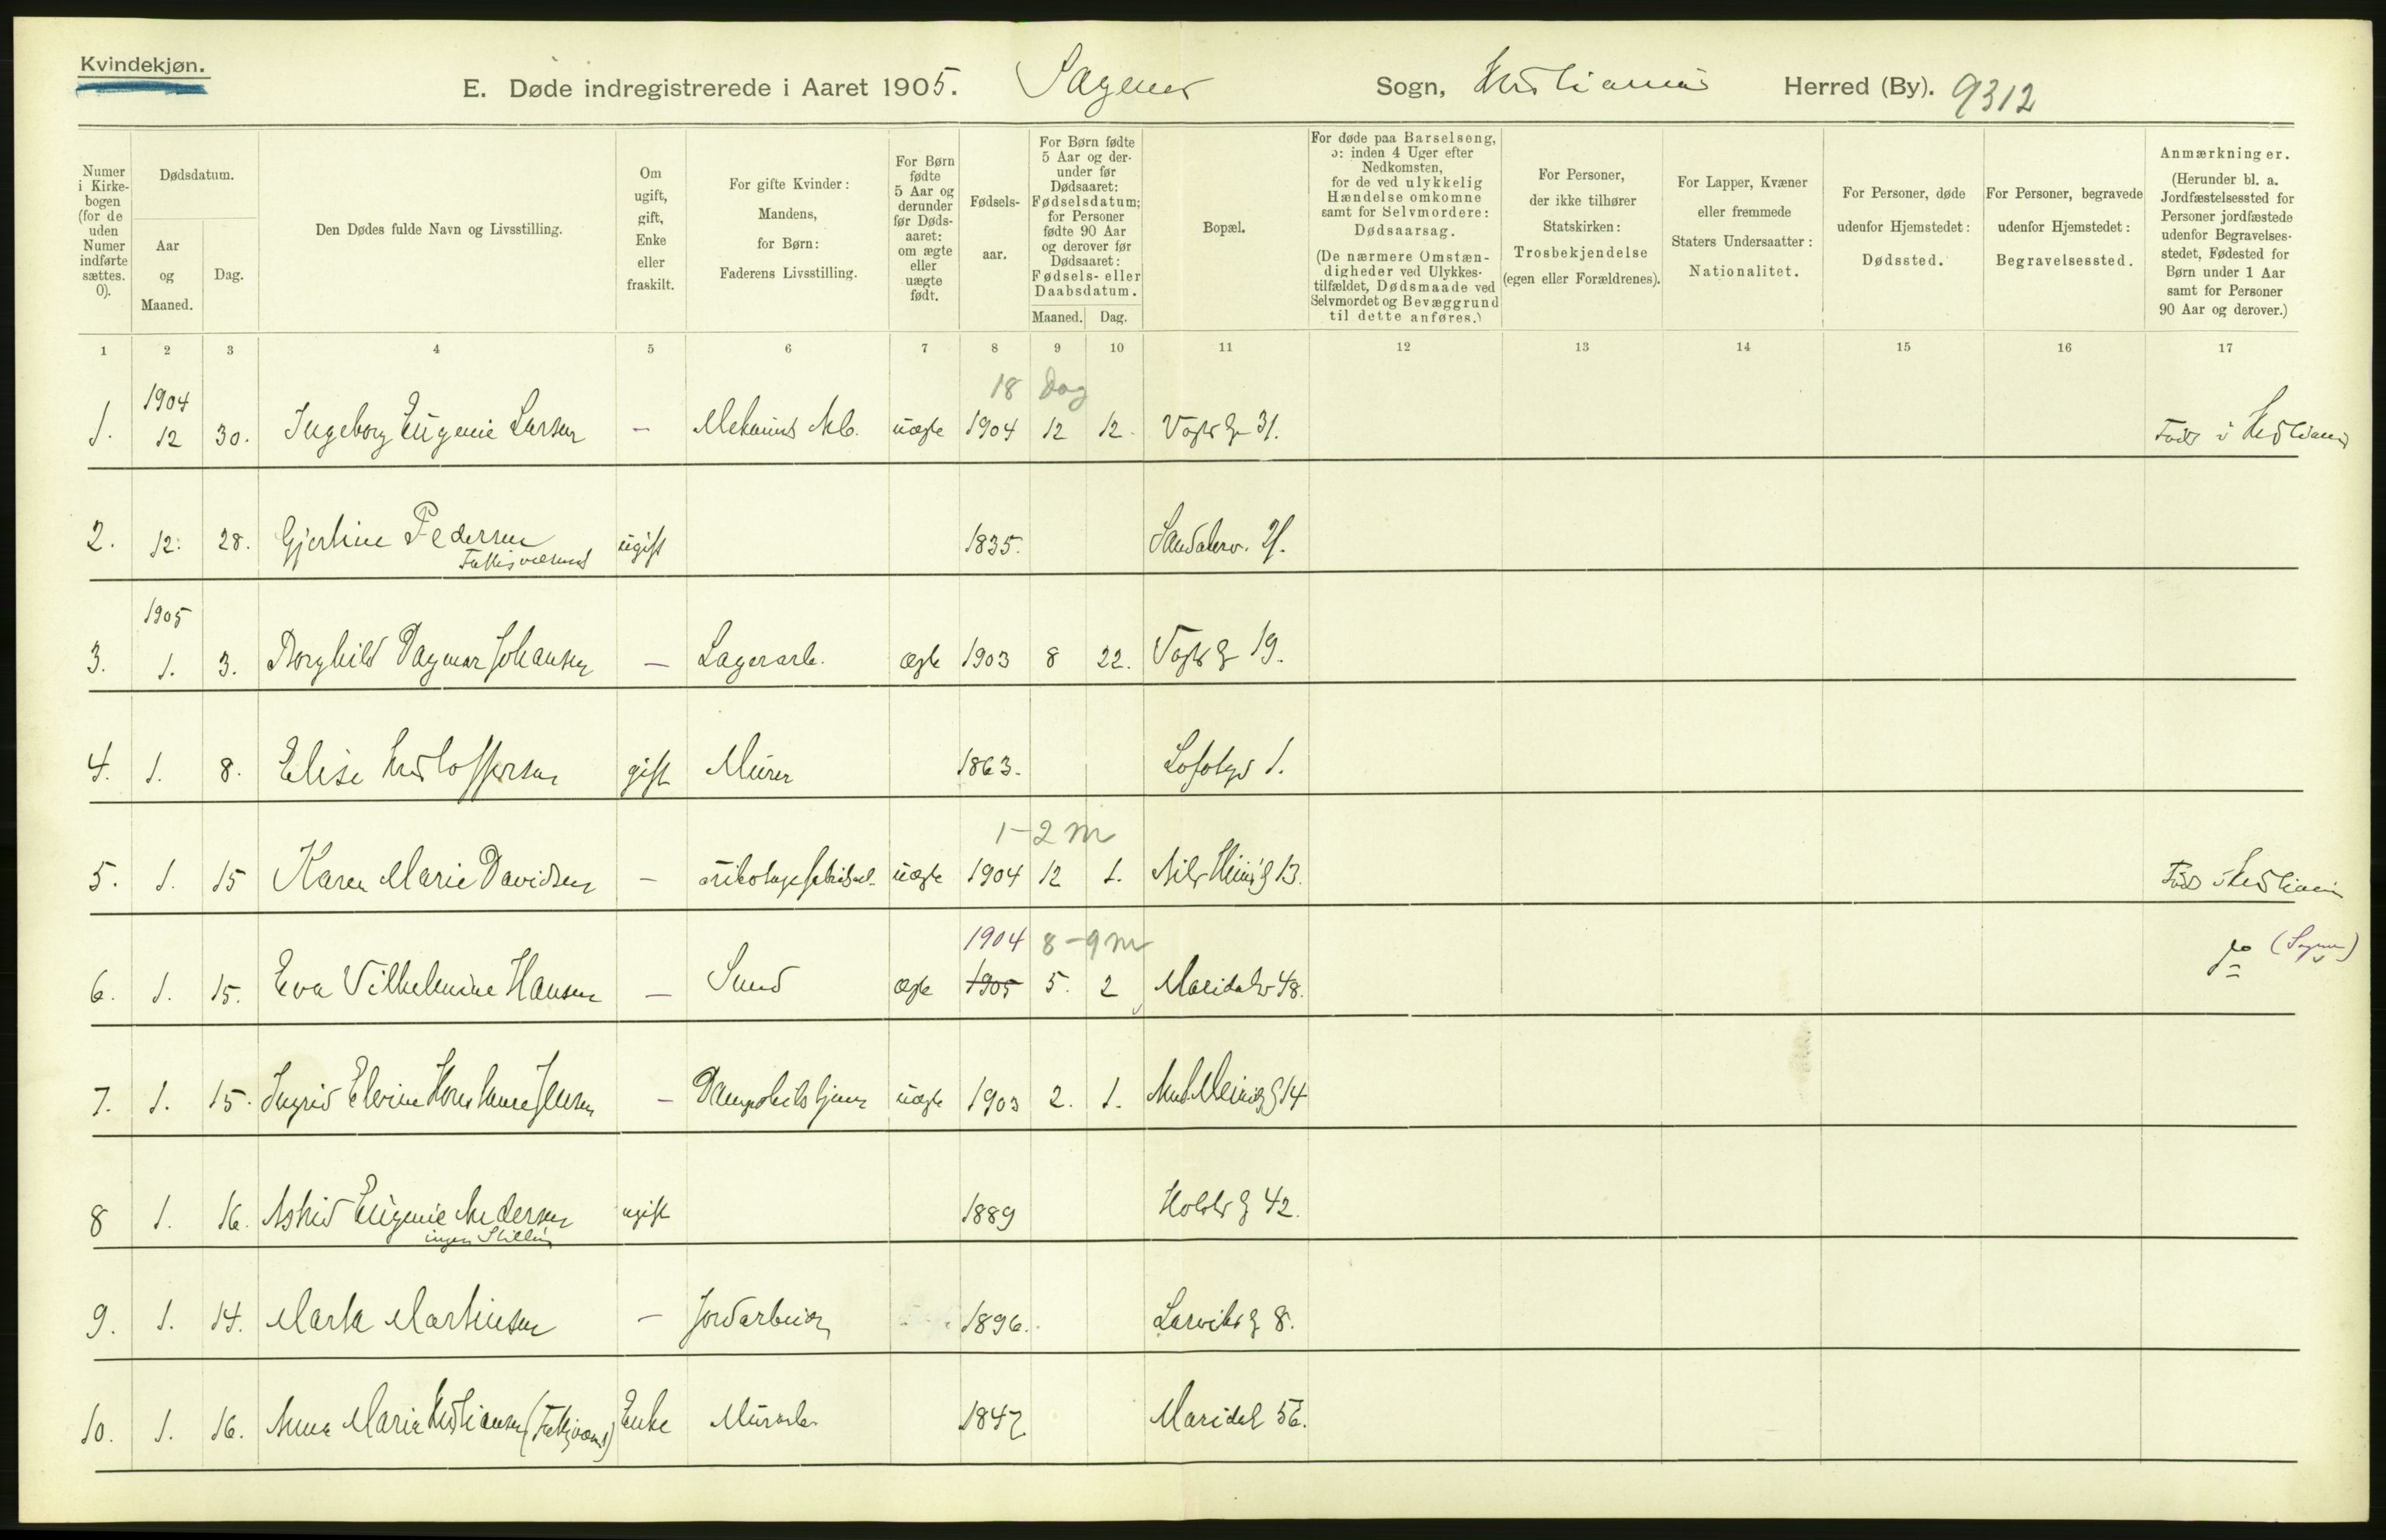 Kvindekjøn.
E. Døde indregistrerede i Aaret 1905. Sagenes Sogn, Kristiania Herred (By). 9312
Numer i Kirkebogen (for de uden Numer indførte sættes. 0).
Dødsdatum.
Aar og Maaned.
Dag.
Den Dødes fulde Navn og Livsstilling.
Om ugift, gift, Enke eller fraskilt.
For gifte Kvinder: Mandens, for Børn: Faderens Livsstilling.
For Børn fødte 5 Aar og derunder før Dødsaaret: om ægte eller uægte født.
Fødselsaar.
For Børn fødte 5 Aar og derunder før Dødsaaret: Fødselsdatum; for Personer fødte 90 Aar og derover før Dødsaaret: Fødsels- eller Daabsdatum.
Maaned. Dag.
Bopæl.
For døde paa Barselseng, ɔ: inden 4 Uger efter Nedkomsten, for de ved ulykkelig Hændelse omkomne samt for Selvmordere: Dødsaarsag.
(De nærmere Omstændigheder ved Ulykkestilfældet, Dødsmaade ved Selvmordet og Bevæggrund til dette anføres.)
For Personer, der ikke tilhører Statskirken: Trosbekjendelse (egen eller Forældrenes).
For Lapper, Kvæner eller fremmede Staters Undersaatter: Nationalitet.
For Personer, døde udenfor Hjemstedet: Dødssted.
For Personer, begravede udenfor Hjemstedet: Begravelsessted.
Anmærkninger.
(Herunder bl. a. Jordfæstelsessted for Personer jordfæstede udenfor Begravelsesstedet, Fødested for Børn under 1 Aar samt for Personer 90 Aar og derover.)
1 2 3 4 5 6 7 8 9 10 11 12 13 14 15 16 17
1904 18 Dag
1. 12 30. Ingeborg Eugenie Larsen — uægte 1904 12 12. Vogts g 31. Født i Kristiania
2. 12. 28. Gjertine Pedersen ugift 1835. Sandakerv.
1905
3. 1. 3. Borghild Dagmar Johansen — Lagerarb. ægte 1903 8 22. Vogts g 19.
4. 1. 8. Elise Kristoffersen gift Murer 1863. 1.
1-2 m
5. 1. 15 Karen Marie Davidsen — uægte 1904 12 1. 13. Født i Kristiania
1904 8-9 m (Sagene)
6. 1. 15. Eva Vilhelmine Hansen — Smed ægte 1905 5. 2 Maridalsv 48. do
7. 1. 15. Ingrid Elvine Jensen — uægte 1903 2. 1. 14
8 1. 16. Astrid Eugenie Andersen ugift 1889 Holsts g 42.
ingen Stilling
9. 1. 14. Marta Martinsen — Jordarbeider 1896. Larviks g 8.
10. 1. 16. Anna Marie Kristiansen Enke Murarb. 1847 Maridal 56.